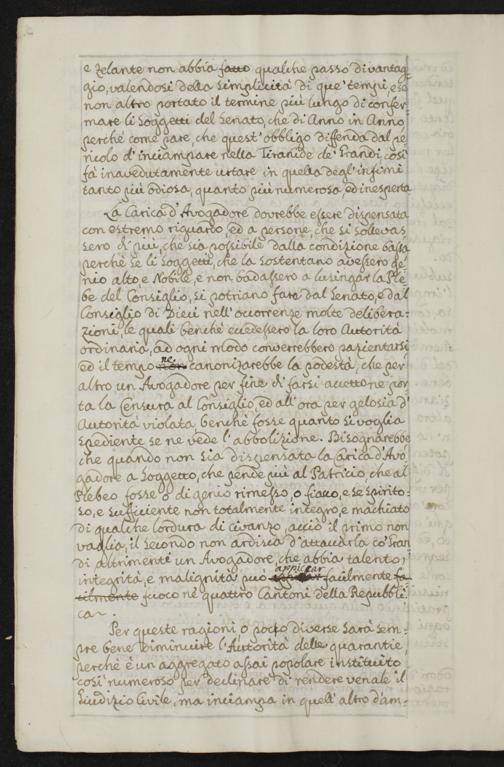 e zelante non abbia fatto qualche passo di vantag=
gio, valendosi della simplicità di que' tempi, e se
non altro portato il termine più lungo di confer=
mare li Soggetti del Senato, che di Anno in Anno
perché come pare, che quest'obbligo diffenda dal pe=
ricolo d'inciampare nella Tiranide de' Grandi, così
fà inavedutamente urtare in quella degl'infimi
tanto più odiosa, quanto più numerosa, ed inesperta
La Carica d'Avogadore dovrebbe essere dispensata
con estremo riguardo, ed a persone, che si sollevas
sero di più, che sia possibile dalla condizione bassa
perchè se li Soggetti, che la sostentano avessero ge=
nio alto e Nobile, e non badassero a lusingar la Ple
be del Consiglio, si potriano far dal Senato, e dal
Consiglio di Dieci nell'occorrenze molte delibera=
zioni, le quali benchè eccedessero la loro Autorità
ordinaria, ad ogni modo converrebbero pazientarsi
ed il tempo ne canonizarebbe la podestà, che per
altro un Avogadore per fine di farsi accettone por
ta la Censura al Consiglio, ed all'ora per gelosia d'
Autorità violata benchè fosse quanto si voglia
spediente se ne vede l'abbolizione. Bisognarebbe
che quando non sia dispensata la Carica d'Avo
gadore a Soggetto, che pende più al Patricio, che al
Plebeo fosse ò di genio rimesso, o fiaco, e se spirito=
so, e sufficiente non totalmente integro, e machiato
di qualche lordura di civanzo, acciò il primo non
vaglia, il secondo non ardisca d'attaccarla co' Gran
di altrimenti un Avogadore, che abbia talento,
integrità, e malignità può appiccar facilmente fa
cilmente fuoco ne' quattro Cantoni della Republi
ca.
Per queste ragioni o poco diverse sarà sem=
pre bene diminuire l'Autorità delle quarantie
perchè è un aggregato assai popolare instituito
così numeroso per declinare di rendere venale il
Giudizio Civile, ma inciampa in quell'altro d'am=